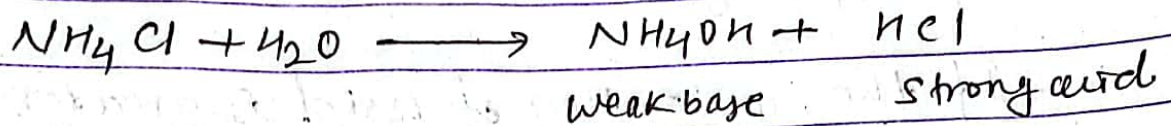 NH4Cl + H2O ⟶ NH4OH + HCl
weak base strong acid